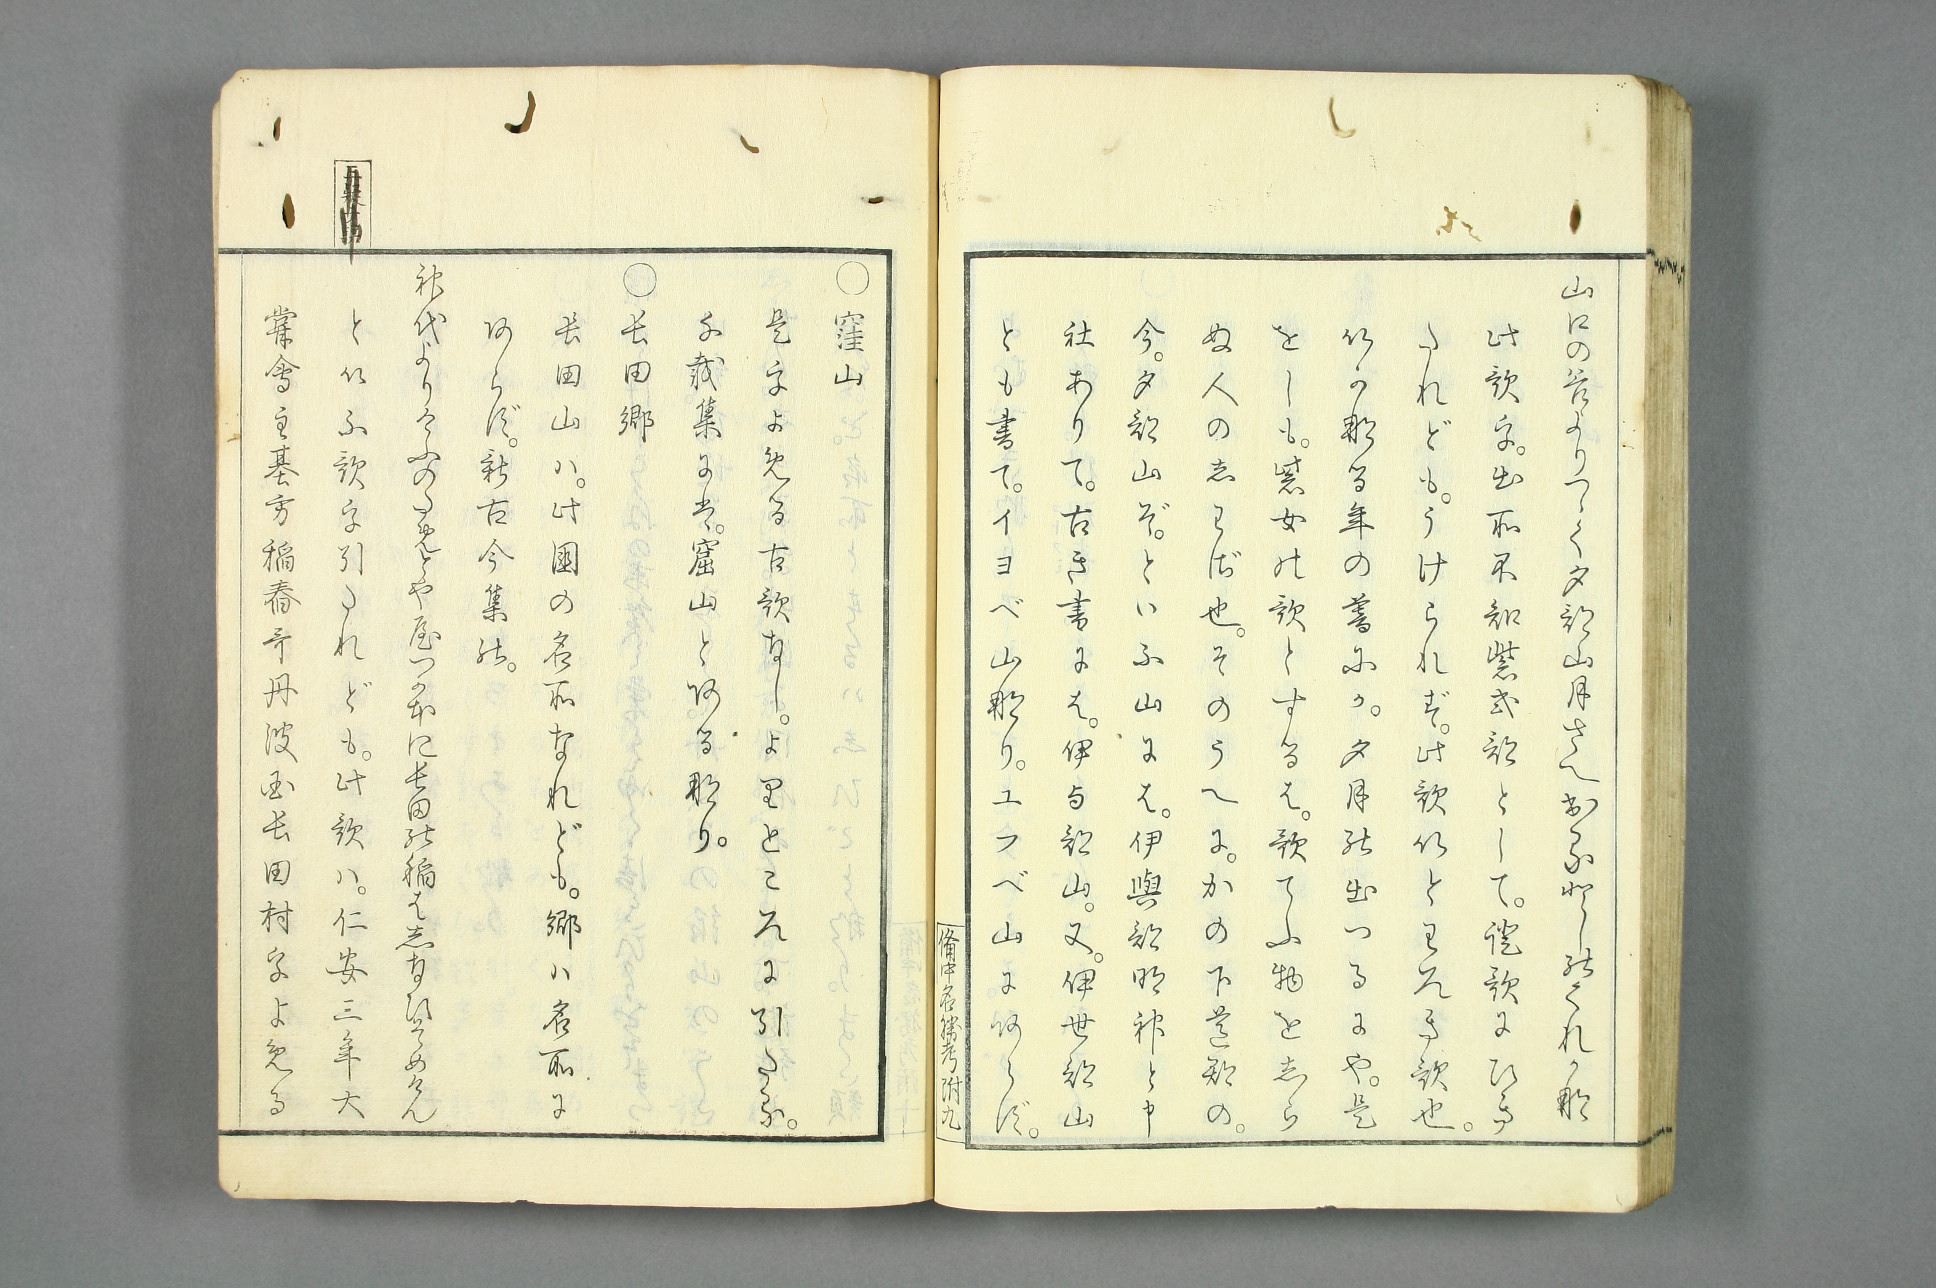 山口の谷よりつゞく夕部山月さへおそし秋のくれかな
此歌を。出所不知紫式部として。證歌にひき
たれども。うけられず。此歌いとわろき歌也。
いかなる年の暮にか。夕月の出つるにや。是
をしも。紫女の歌とするは。歌てふ物をしら
ぬ人のしわざ也。そのうへに。かの下道郡の。
今。夕部山ぞ。といふ山には。伊與部明神と申
社ありて。古き書には。伊与部山。又。伊世部山
とも書て。イヨベ山なり。ユフベ山にあらず。
備中名勝考附九
○窪山
是をよめる古歌なし。より所とろに引たる。
千載集には。窟山とあるなり。
○長田郷
長田山ハ。此國の名所なれども。郷ハ名所に
あらず。新古今集の。
神代よりけふのためとや八つかほに長田の稲はしなひそめけん
といふ歌を引たれども。此歌ハ。仁安三年大
嘗會主基方稲舂哥丹波国長田村をよめる